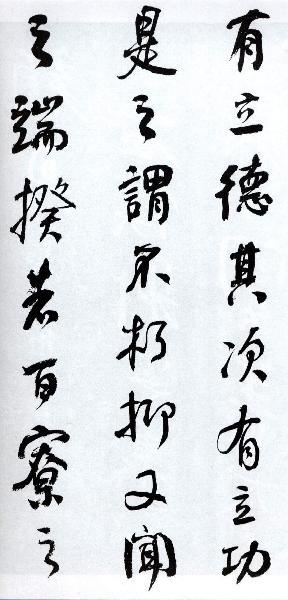 有立德其次有立功
是之謂不朽抑又聞
之端揆者百寮之